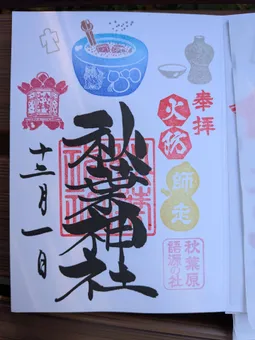 奉拝
火防
師走
秋葉神社
秋葉原
語源の社
十二月一日